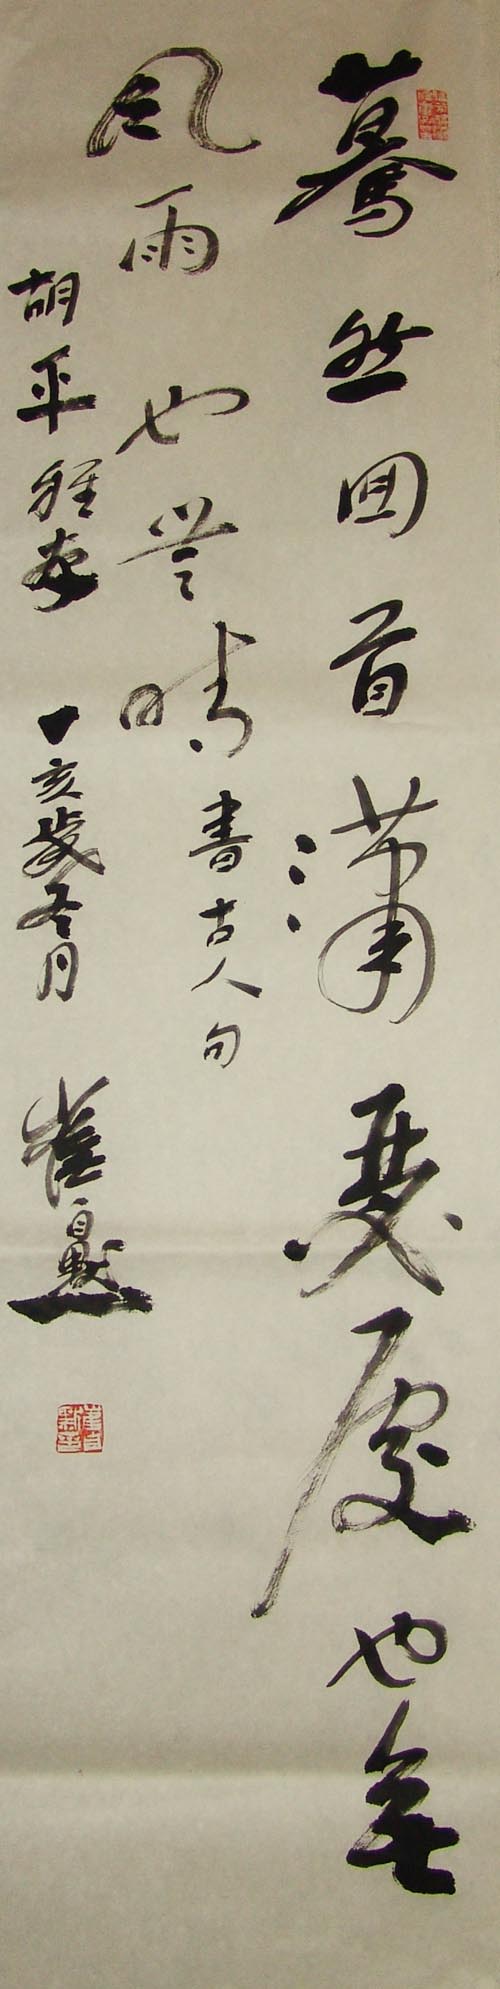 驀然回首瀟瑟處也無
風雨也無晴 書古人句
胡平雅 丁亥歲冬月 崔自默
崔自默印